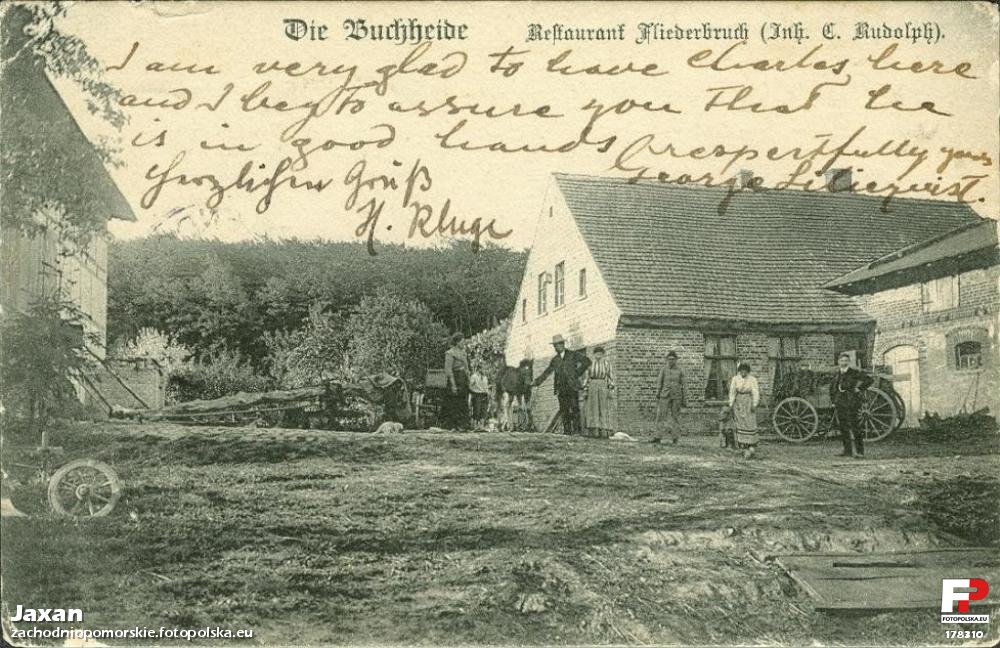 Die Buchheide
Restaurant Fliederbruch (Inh. C. Rudolph).
I am very glad to have Charles here
and I beg to assure you that he
is in good hands
respectfully yours
George Liliequist.
Herzlichen Gruß
H. Kluge
Jaxan
zachodniopomorskie.fotopolska.eu
FP
FOTOPOLSKA.EU
178310